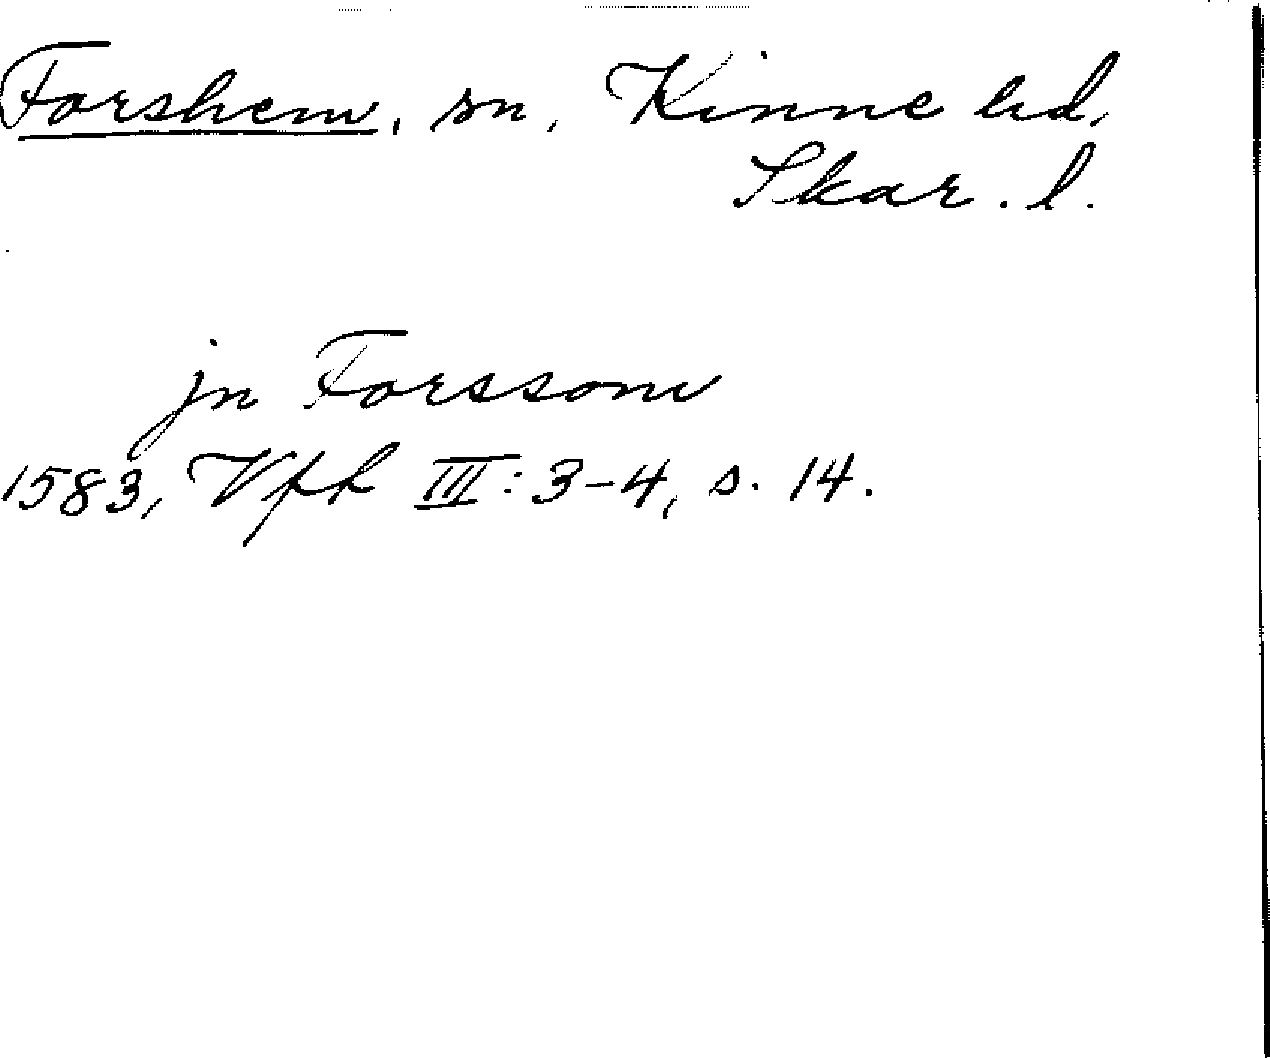 Forshem, sn, Kinne hd,
Skar. l.
jn Forssom
1583, Vfk III: 3-4, s. 14.